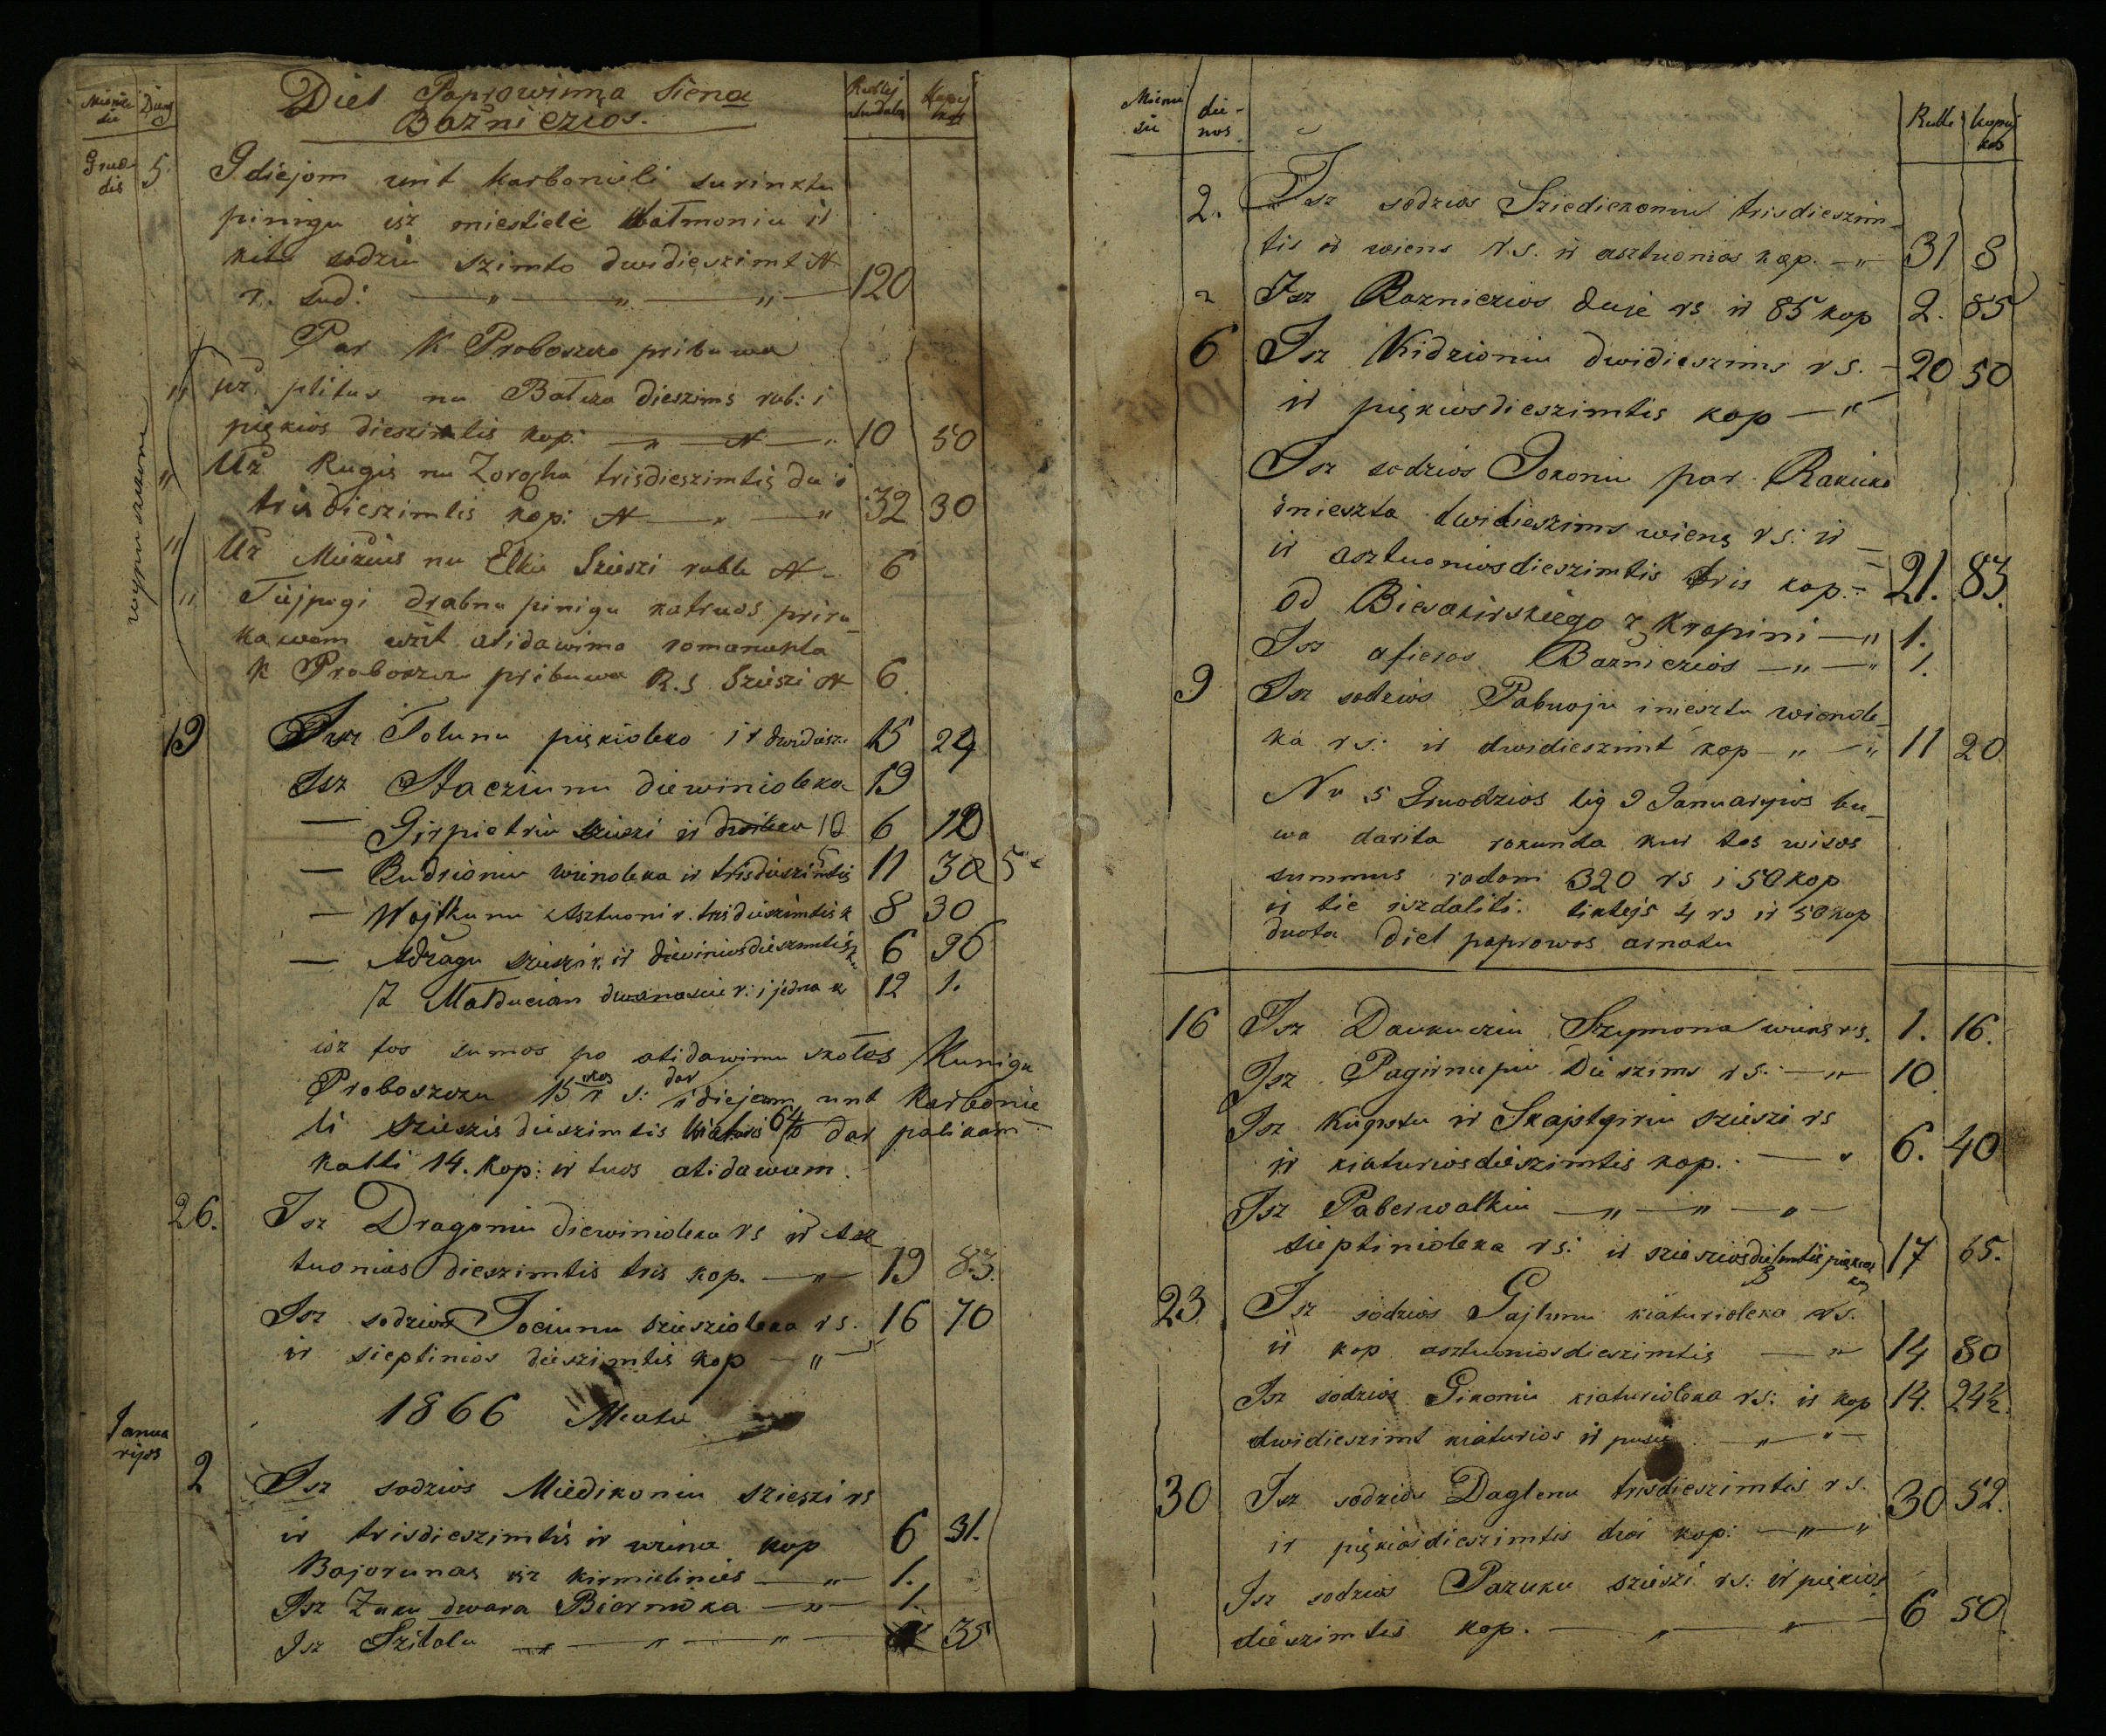 Mienesiu Diena Diel Paprowinma Siena Rublej Kapej
Bažniczios.
Grudis 5 Idiejom unt karbonieli surinktu
pinigu isz miestiele Watmoniu ir
kitu sodziu szimto dwidieszimt
r. sud: — „ — „ — „ — 120
Par K Proboszcza pribuwa
„ uz plitas nu Batiza dieszims rub: i
piękios dieszimtis kop: — „ — „ 10 50
„ Uz Rugis nu Zorocha trisdieszimtis du i
trisdieszimtis kop: — „ — „ 32 30
„ Uz Miezius nu Elkie Szieszi rubli 6
„ Tiejpogi drabnu pinigu katruos priru-
kawom uzt atidawima
K Proboszcz pribuwa R.S Szieszi 6.
19 Isz Tolunu piękioleko ir dwidiesz: 15 24
Isz Staeziunu diewinioleka 19
— Girpietriu szieszi ir 12 6 12
— Budrioniu wienoleka ir trisdieszimtis 11 30 5
— Wojtkunu Asztuoni r. trisdieszimtis k 8 30
— Adžagu szieszi r. ir diewiniosdieszimtis 6 96
Z Matducian dwanascie r: i jedna k 12 1.
isz tos sumos po atidawimu szotos Kunigu
Proboszczu 15 r s: dar idiejom unt Karbonie
li szieszis dieszimtis 64 dar palikom
kalti 14. kop: ir tuos atidawem.
26. Isz Dragoniu diewinioleka rs ir Asz
tuonias dieszimtis tris kop. — „ — 19 83.
Isz sodzios Jociunu szieszioleka rs. 16 70
ir sieptinios dieszimtis kop — „ —
1866 Meatu
Januarijos
2 Isz sodzios Miedikoniu szieszi rs
ir trisdieszimtis ir wiena kop 6 31.
Bajorunas isz kirmielinies — „ — 1.
Isz Zuku dwara Biernoka — „ — 1.
Isz Szitalu — „ — „ — „ — 35
Mienesiu dienos. Rubl kopejkos
2. Isz sodzios Sziediekoniu trisdieszim-
tis ir wiens r.s. ir asztuonias kop. — „ 31 8
2 Isz Bazniczios duje rs ir 85 kop 2. 85
6 Isz Kidzioniu dwidieszims rs. — 20 50
ir piękiosdieszimtis kop — „
Isz sodzios Jokoniu par Rakicka
inieszta dwidieszims wiens rs: ir —
ir asztuoniosdieszimtis tris kop. — 21. 83.
od Biesakirskiego z Krapini — „ 1.
Isz afieros Bazniczios — „ — „ 1.
9 Isz sodzios Pabuoju iniesztu wienole-
ka rs: ir dwidieszimt kop — „ — „ 11 20
Nu 5 Gruodzios lig 9 Januaryjos bu-
wa darita rokunda kur tos wisos
summus radom 320 rs i 50 kop
ir tie iszdaliti. liktejs 4 rs ir 50 kop
duota diel paprowos arnotu
16 Isz Daukucziu Szymona wiens rs. 1. 16.
Isz Pagirnupiu Dieszims rs: — „ — 10
Isz Kugistu ir Skajstgiriu szieszi rs
ir kiaturiosdieszimtis kop. — „ 6. 40
Isz Paberwalkiu — „ — „ — „ —
sieptinioleka rs: ir szieszios dieszimtis piękios 17 65.
23 Isz sodzios Gajlunu kiaturioleka rs.
ir kop asztuoniosdieszimtis — „ — 14 80
Isz sodzios Gikoniu kiaturioleka rs: ir kop 14. 24½.
dwidieszimt kiaturios ir pusie — „ — „ —
30 Isz sodzios Daglenu trisdieszimtis rs. 30 52.
ir piękiosdieszimtis dwi kop: — „ — „
Isz sodzios Pazuku szieszi rs: ir piękios
dieszimtis kop. — „ — „ — 6 50.